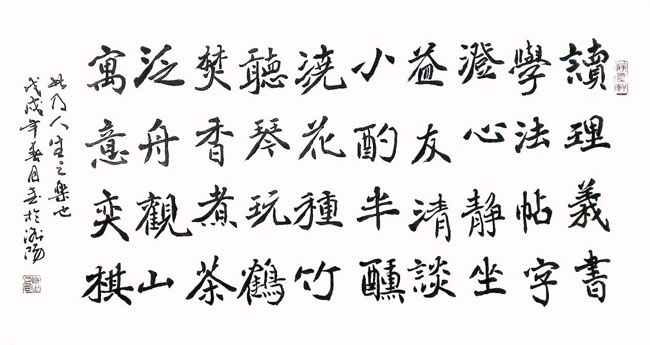 讀理義書
學法帖字
澄心靜坐
益友清談
小酌半醺
澆花種竹
聽琴玩鶴
焚香煮茶
泛舟觀山
寓意奕棋
此乃人生之樂也
戊戌年春月書於洛陽